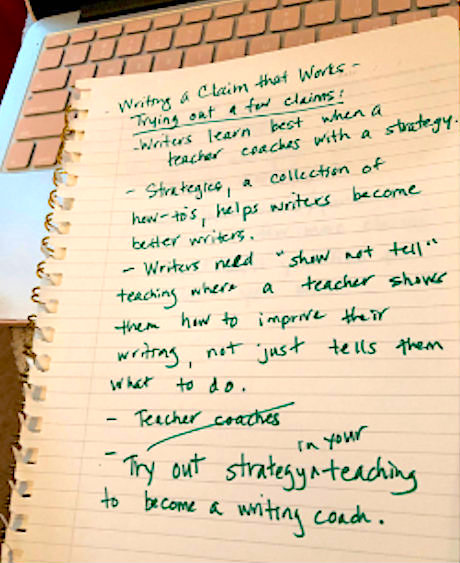 Writing a Claim that Works -
Trying out a few claims:
- Writers learn best when a
teacher coaches with a strategy.
- Strategies, a collection of
how-to's, helps writers become
better writers.
- Writers need "show not tell"
teaching where a teacher shows
them how to improve their
writing, not just tells them
what to do.
- Teacher coaches
in your
- Try out strategy^teaching
to become a writing coach.